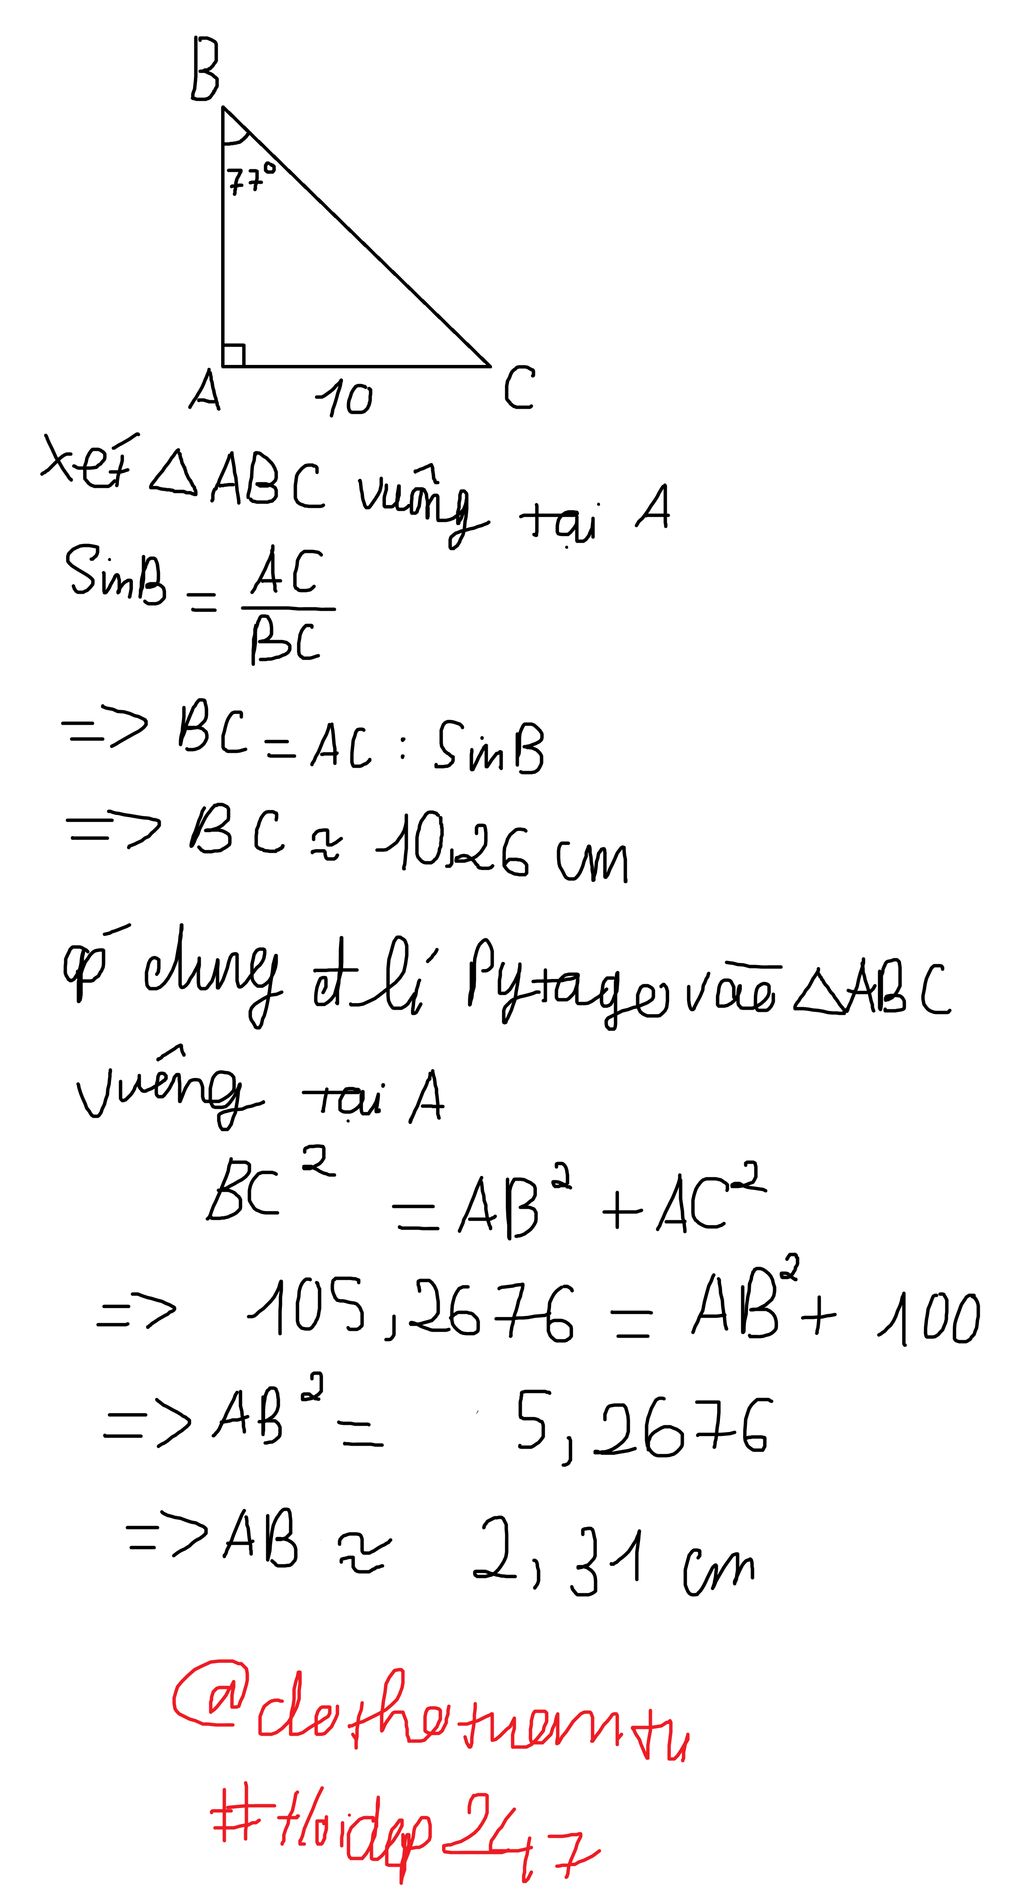 B
77°
A 10 C
xét △ABC vuông tại A
SinB = AC
BC
=> BC = AC : SinB
=> BC ≈ 10,26 cm
áp dụng đ lí Pytago vào △ABC
vuông tại A
BC² = AB² + AC²
=> 105,2676 = AB² + 100
=> AB² = 5,2676
=> AB ≈ 2,31 cm